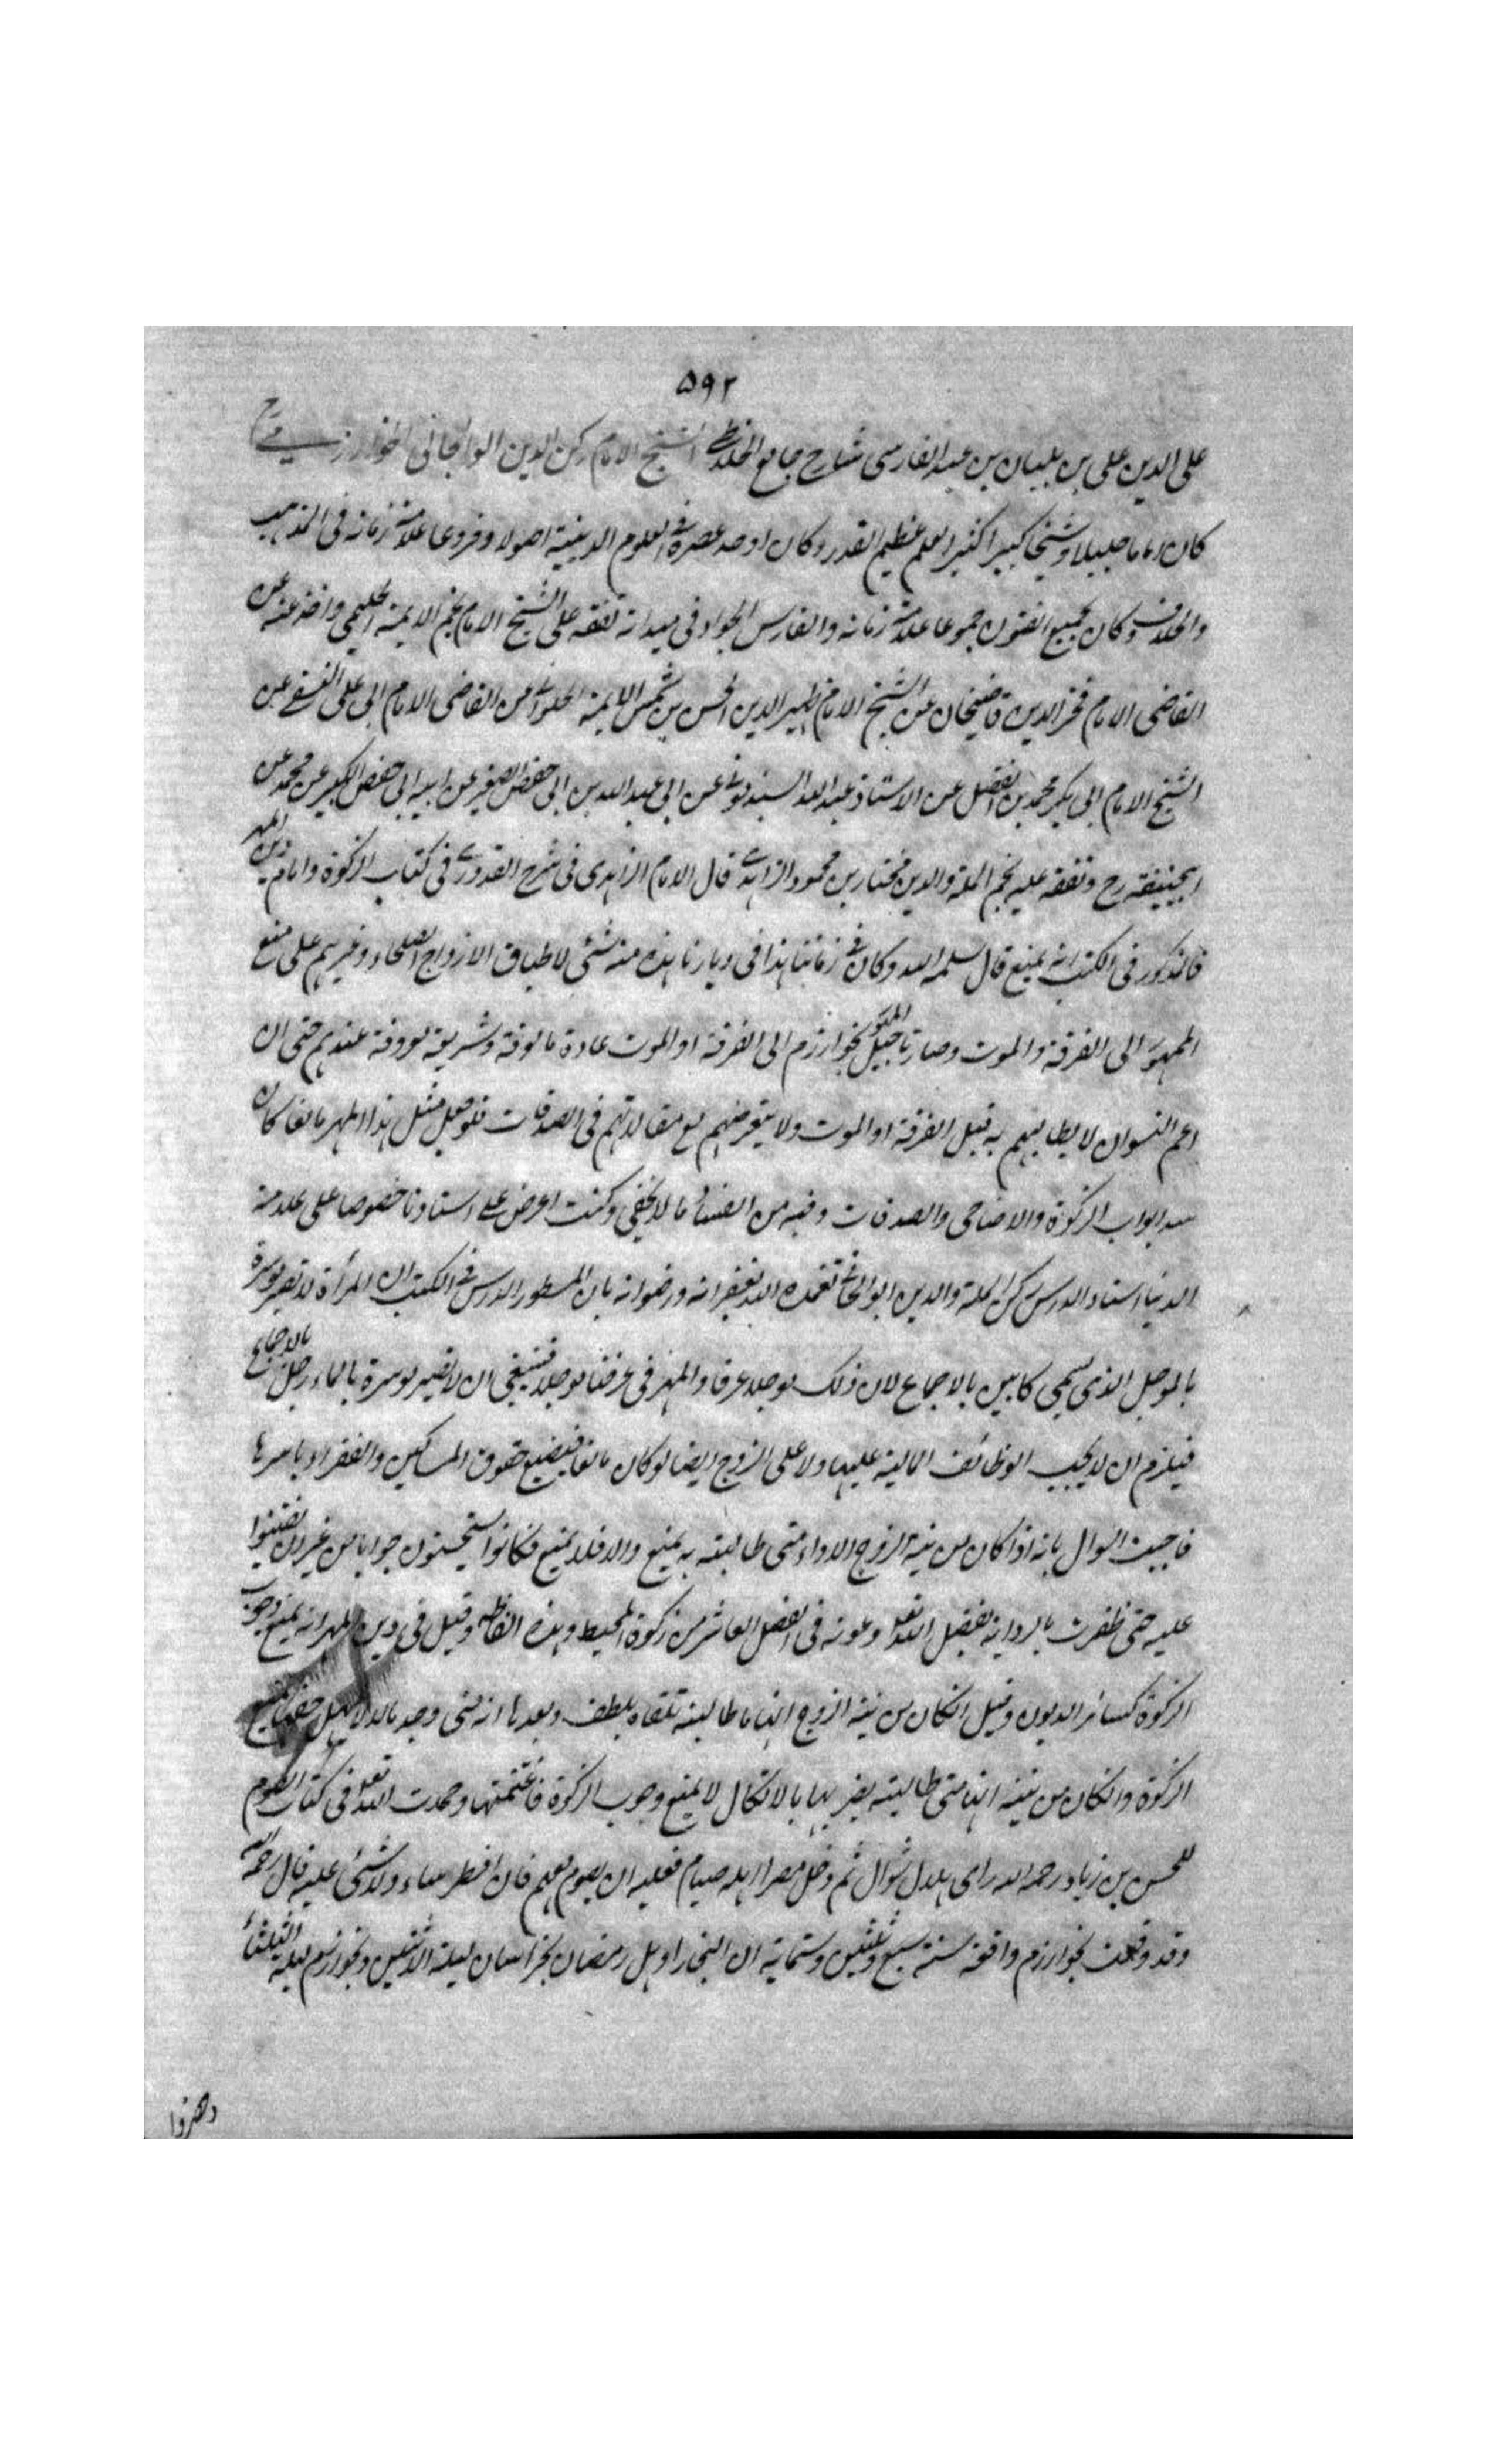 ۵۹۲
على الدين على بن بلبان بن عبد الفارسى شارح جامع الخلاطى الشيخ الامام ركن الدين الوالجانى الخوارزمى
كان اماما جليلا وشيخا كبيرا كثير العلم عظيم القدر وكان اوحد عصره فى العلوم الدينية اصولا وفروعا علامة زمانه فى المذهب
والخلاف وكان لجميع الفنون جموعا علامة زمانه والفارس الجواد فى ميدانه تفقه على الشيخ الامام نجم الايمة الحليمى واخذ عنه عن
القاضى الامام فخر الدين قاضيخان عن الشيخ الامام ظهير الدين الحسن بن شمس الايمة الحلوانى عن القاضى الامام ابى على النسفى عن
الشيخ الامام ابى بكر محمد بن الفضل عن الاستاذ عبد الله السبذمونى عن ابى عبد الله بن ابى حفص الصغير عن ابيه ابى حفص الكبير عن محمد عن
ابيحنيفة رح وتفقه عليه نجم الملة والدين مختار بن محمود الزاهدى قال الامام الزاهدى فى شرح القدورى فى كتاب الزكوة واما دين المهر
فالمذكور فى الكتب انه يمنع قال سلمه الله وكان فى زماننا هذا فى ديارنا هذه منه شئ لاطباق الازواج الصلحاء وغيرهم على منع
المهور الى الفرقة والموت وصار تاجيل المهور بخوارزم الى الفرقة او الموت عادة مالوفة وشريعة معروفة عندهم حتى ان
اعم النسوان لا يطالبنهم به قبل الفرقة او الموت ولا يتعرضنهم مع مقالدتهم فى الصدقات فلو جعل مثل هذا المهر مانعا كان
سد ابواب الزكوة والاضاحى والصدقات وفيه من الفساد ما لا يخفى وكنت اعرض على استادنا خصوصا على علامة
الدنيا استاد الدرس ركن الملة والدين الوالجانى تغمده الله بغفرانه ورضوانه بان المسطور الدرس فى الكتب ان المرأة لا تصير موسرة
بالموجل الذى سمى كابين بالاجماع لان ذلك موجلا عرفا والمهر فى عرفنا موجلا فينبغى ان لا تصير موسرة بالماء رجل بالاجماع
فيلزم ان لا يجب الوظائف المالية عليها ولا على الزوج ايضا لو كان مانعا فيضيع حقوق المساكين والفقراء باسرها
فاجبت السوال بانه اذا كان من نية الزوج الاداء متى طالبته به يمنع والا فلا يمنع فكانوا يستحسنون جوابا من غير ان يعتنوا
عليه حتى ظفرت بالرواية بفضل الله تعالى وعونه فى الفصل العاشر من زكوة المحيط وهذه الفاظه وقيل فى دين المهر انه يمنع وجوب
الزكوة كسائر الديون وقيل ان كان من نية الزوج انها ما طالبته تلقاه بلطف وبعدها انه متى وجد مالا
الزكوة وان كان من نيته انها متى طالبته يضربها بالانكال لا يمنع وجوب الزكوة فاغتنمتها وحمدت الله تعالى فى كتاب الصوم
للحسن بن زياد رحمه الله راى هلال شوال ثم دخل مصرا اهله صيام فعليه ان يصوم معهم فان افطر ساء ولا شئ عليه قال رحمه الله
وقد وقعت بخوارزم واقعة سنة سبع وثلثين وستماية ان التجار اوهل رمضان بخراسان ليلة الاثنين وبخوارزم ليلة الثلثاء